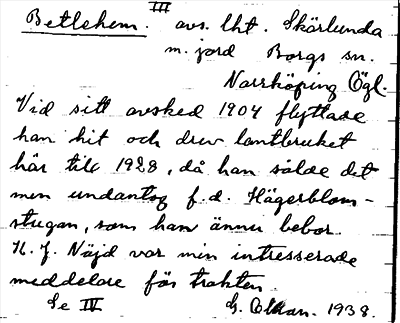 III
Betlehem. avs. lht. Skärlunda
m. jord Borgs sn.
Norrköping Ögl.
Vid sitt avsked 1904 flyttade
han hit och drev lantbruket
här till 1928, då han sålde det
men undantog f.d. Hägerblom-
stugan, som han ännu bebor.
N. J. Nöjd var min intresserade
meddelare för trakten.
Se IV G. 1938.